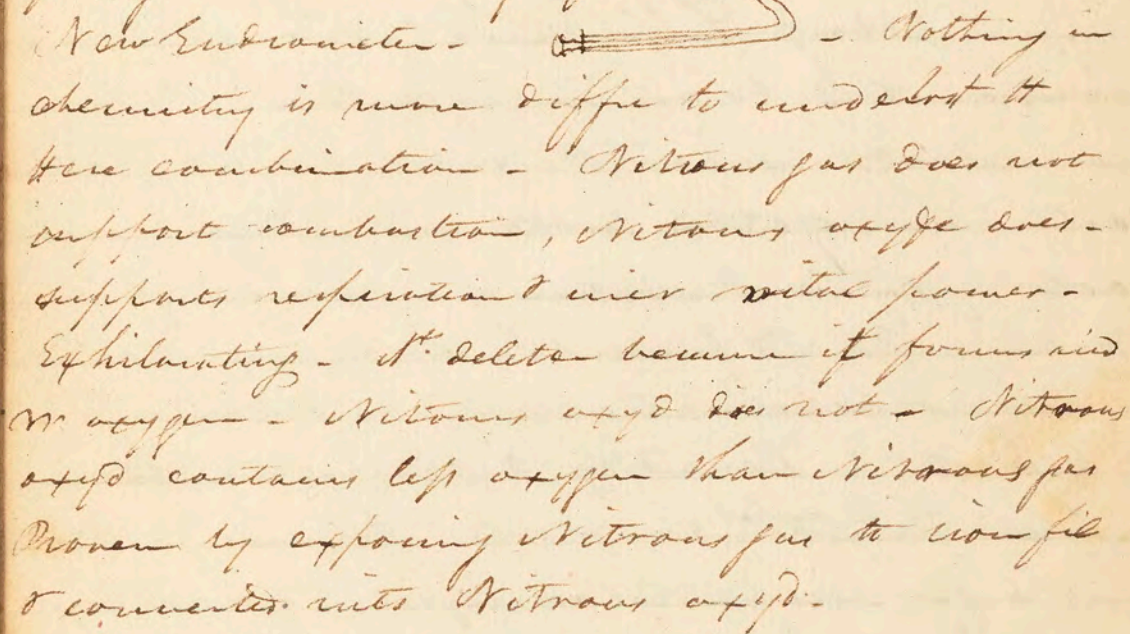 New Eudiometer - - Nothing in
chemistry is more diffic to understand th
these combination - Nitrous gas does not
support combustion, Nitous oxyde does -
supports respiration & incr vital power -
Exhilarating - Nt. delete because it forms acid
w oxygen - Nitous oxyd does not - Nitrous
oxyd contains less oxygen than Nitrous gas
Proven by exposing Nitrous gas to iron fil
& converted into Nitrous oxyd -